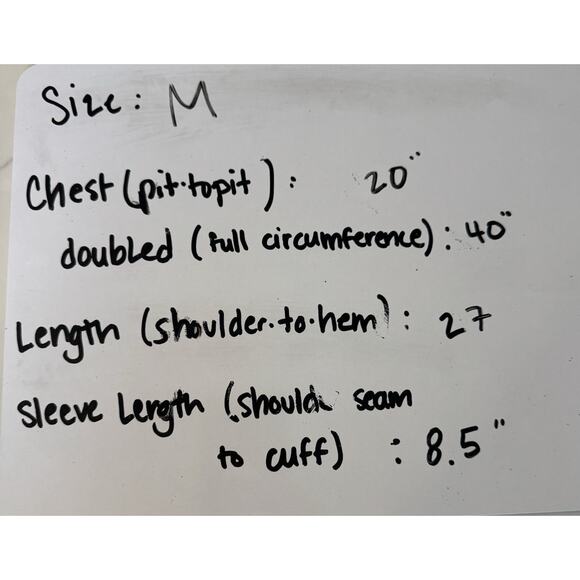 Size: M
Chest (pit·to pit): 20"
doubled (full circumference): 40"
Length (shoulder·to·hem): 27
Sleeve Length (should seam
to cuff) : 8.5"